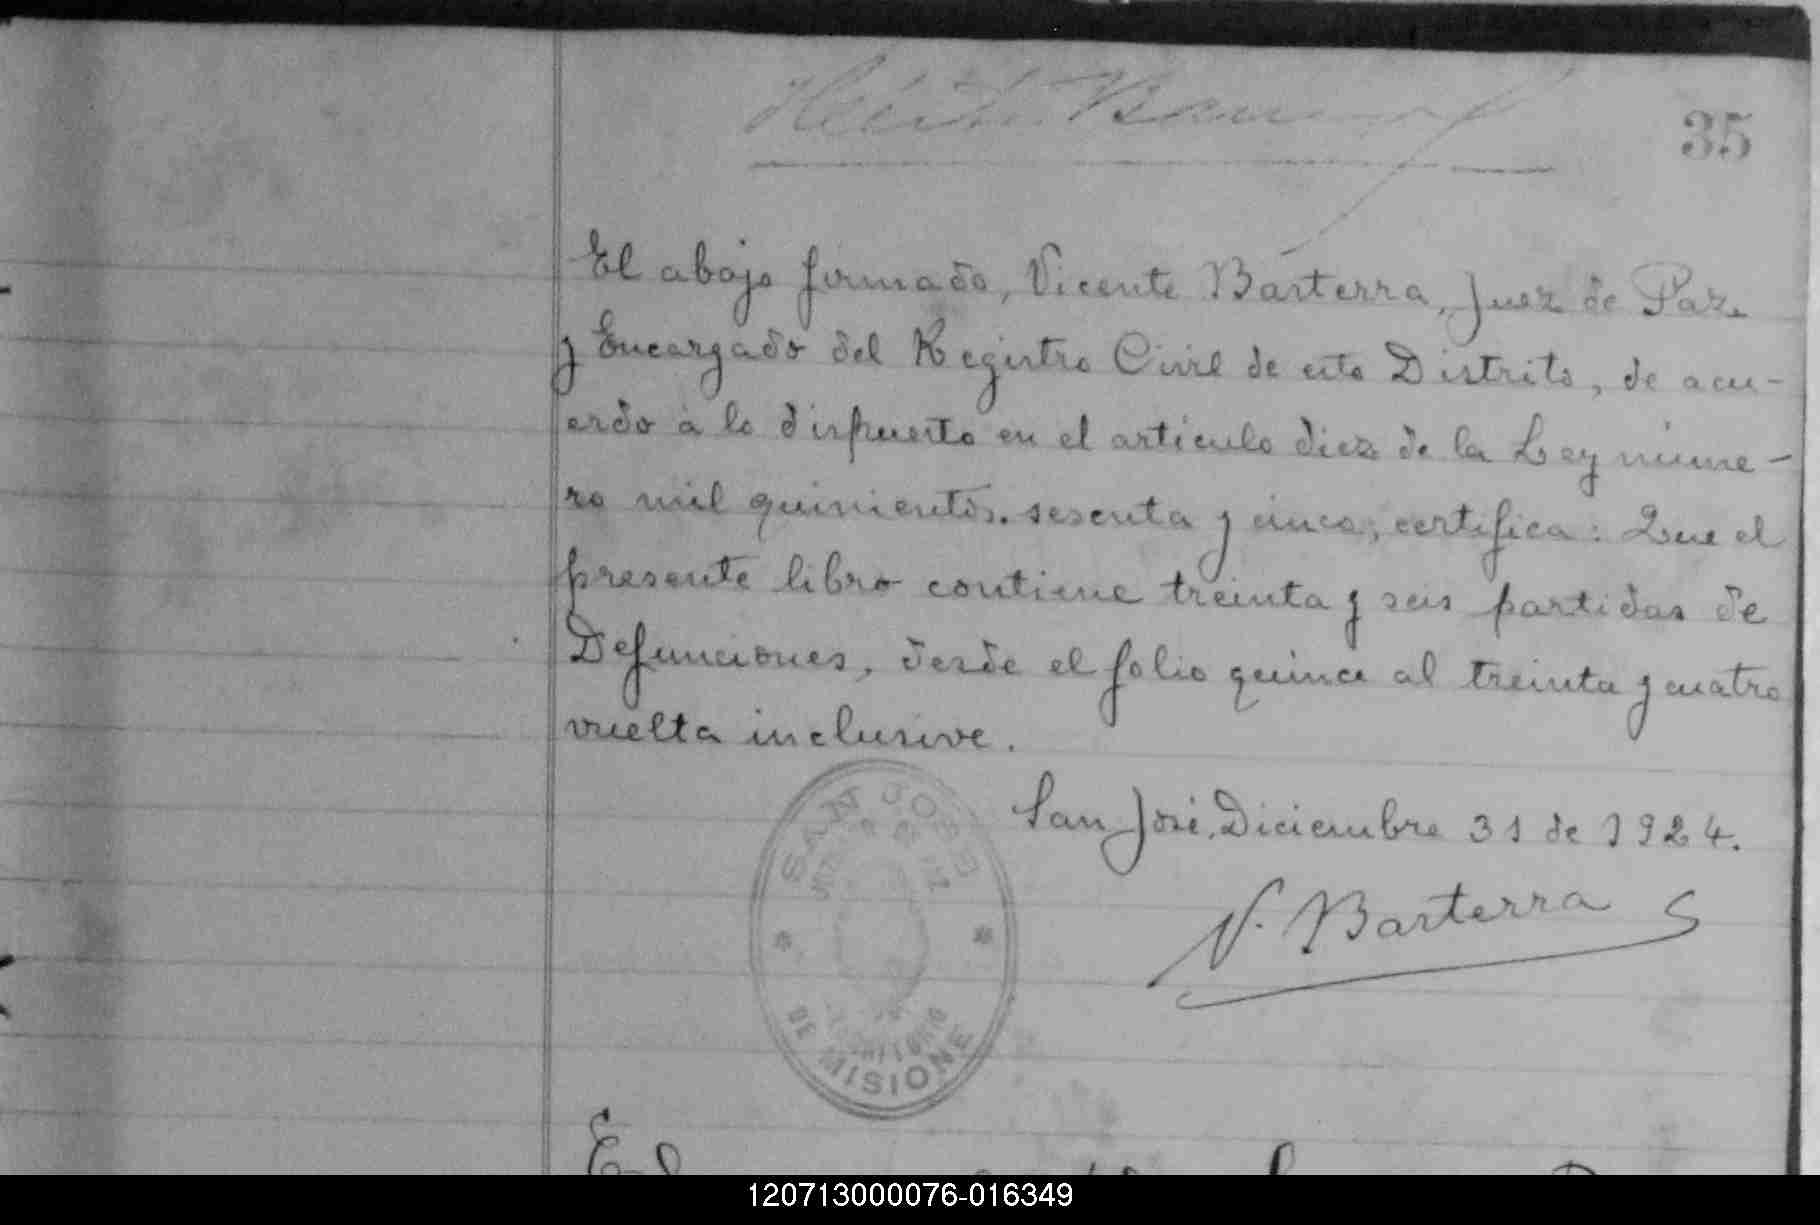 35
El abajo firmado, Vicente Barterra, Juez de Paz
y Encargado del Registro Civil de este Distrito, de acu-
erdo á lo dispuesto en el articulo diez de la Ley núme-
ro mil quinientos sesenta y cinco, certifica: Que el
presente libro contiene treinta y seis partidas de
Defunciones, desde el folio quince al treinta y cuatro
vuelta inclusive.
San José, Diciembre 31 de 1924.
V. Barterra
SAN JOSE
DE MISIONE
El
120713000076-016349